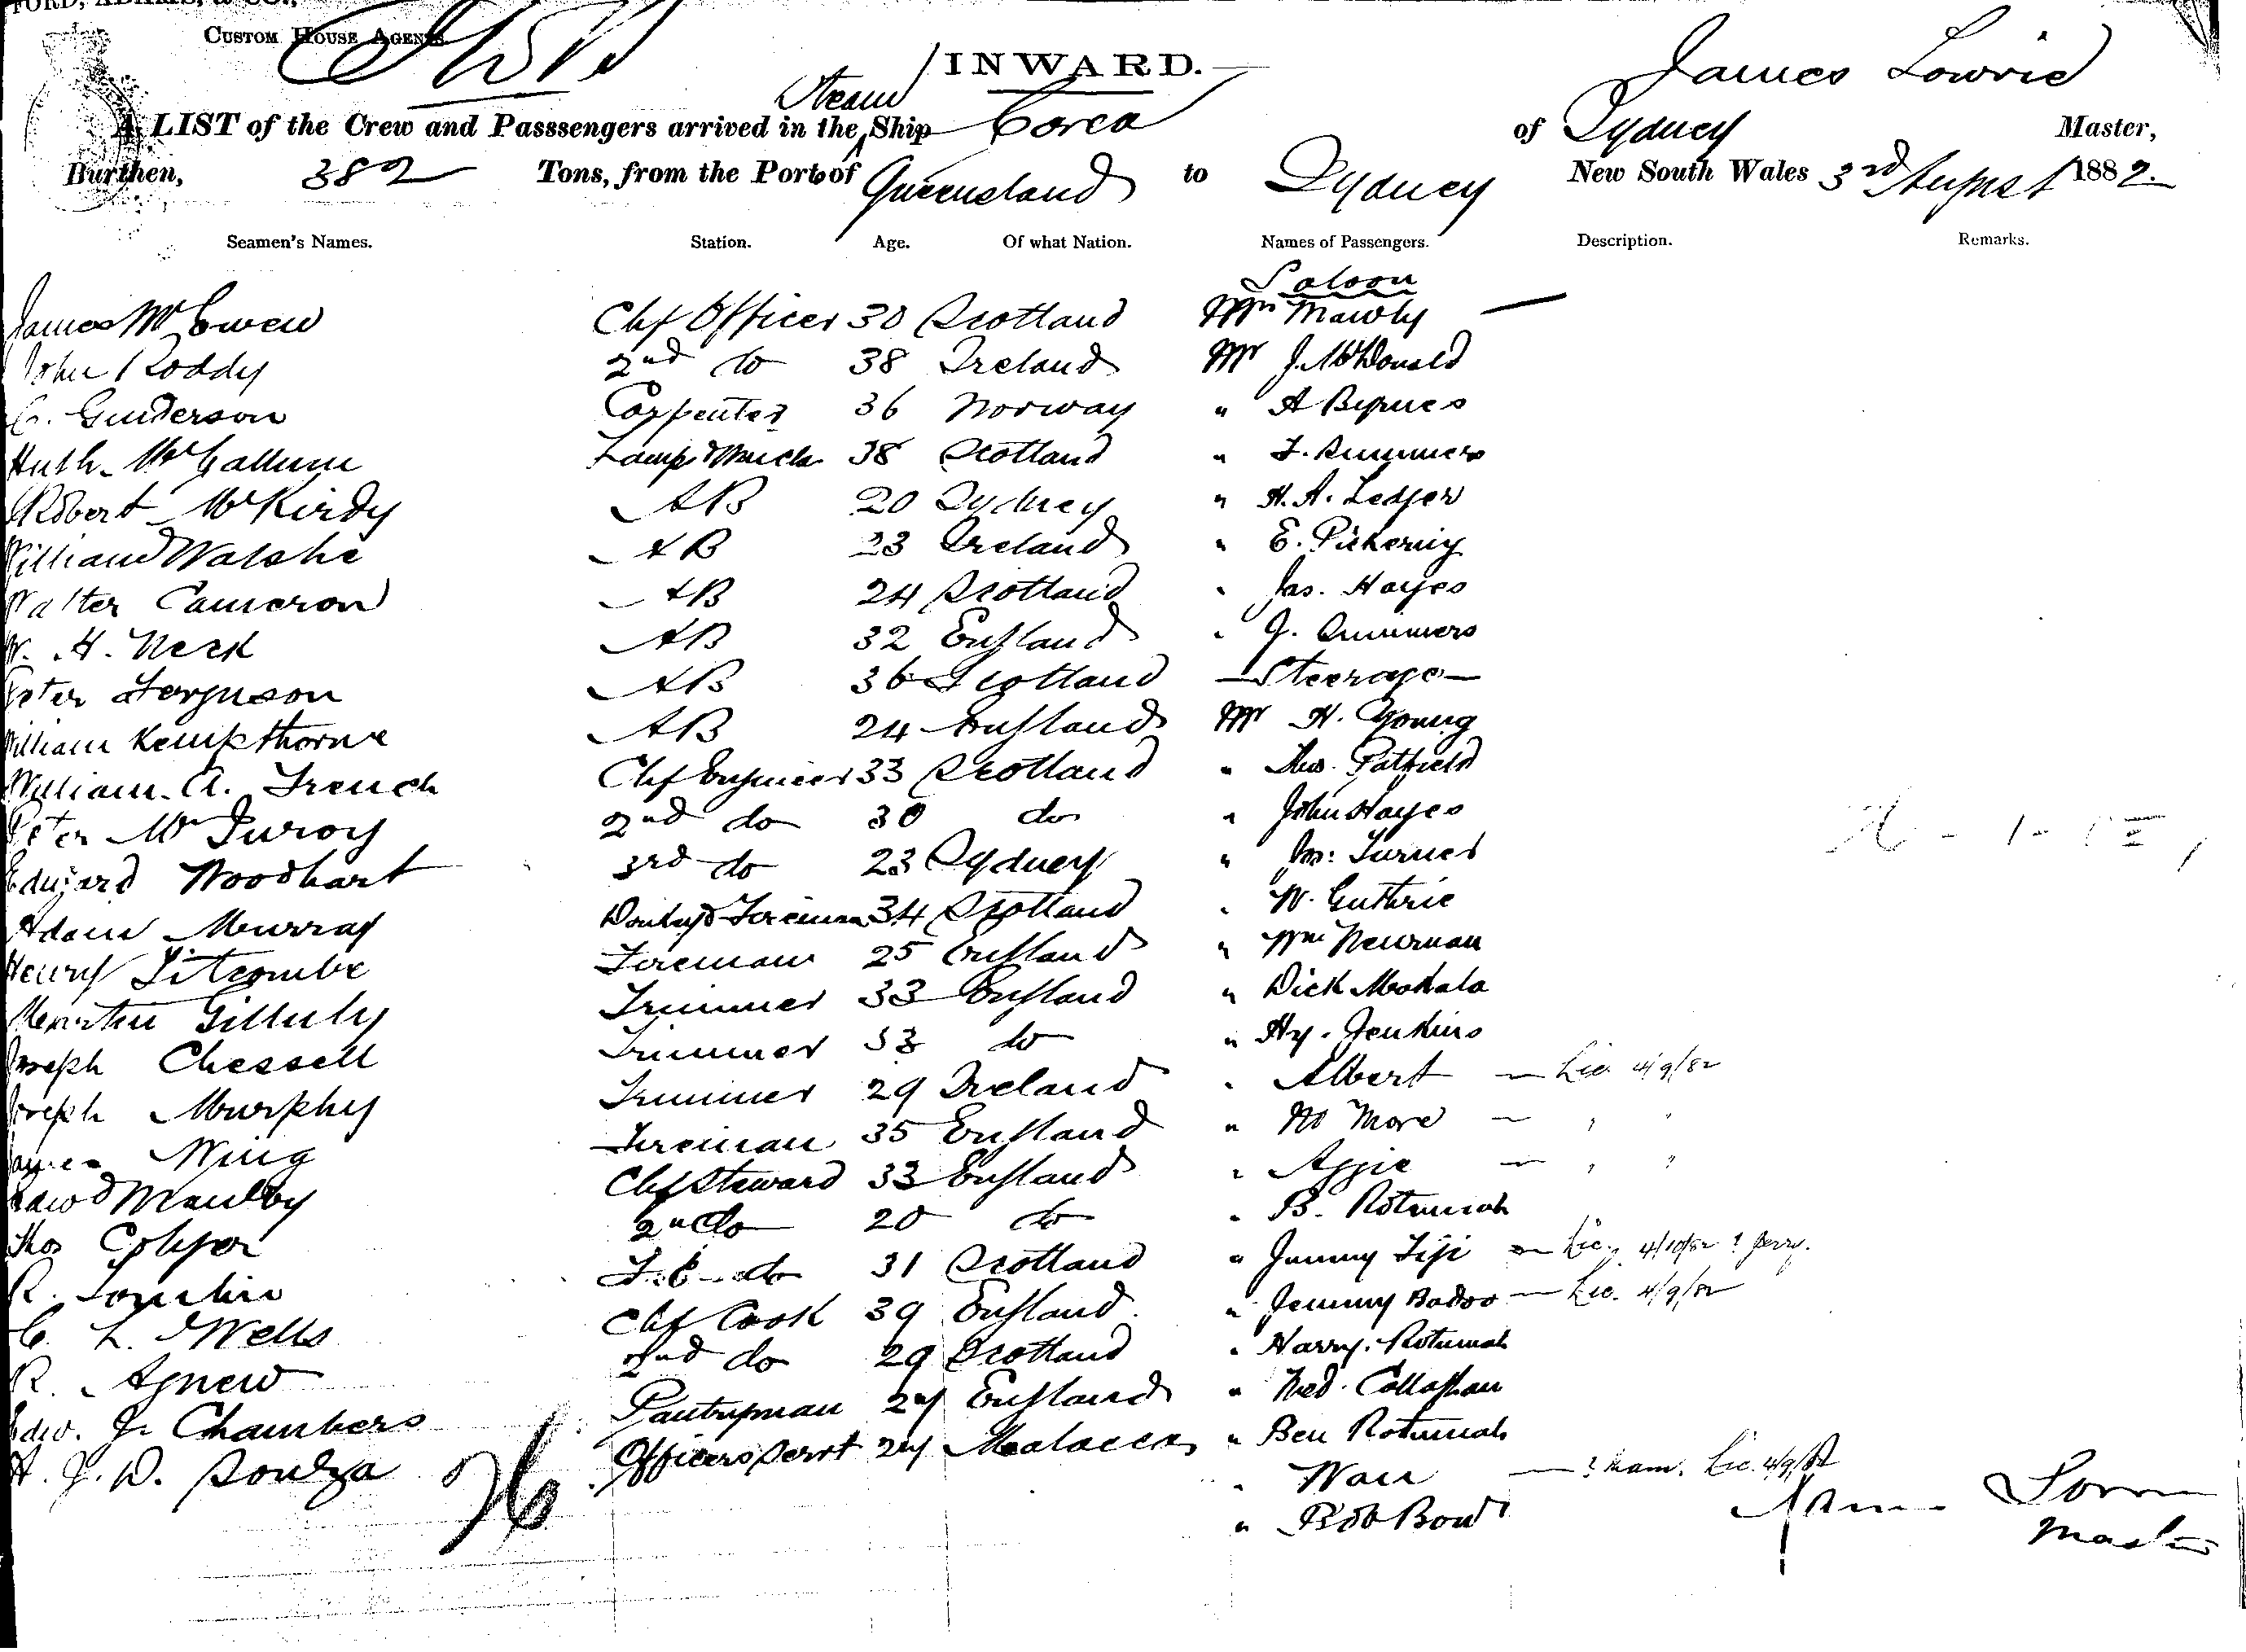 FORD, ADAMS, & CO.,
CUSTOM HOUSE AGENTS.
INWARD.
James Lowrie
Steam
A LIST of the Crew and Passsengers arrived in the Ship Corea of Sydney Master,
Burthen, 382 Tons, from the Port of Queensland to Sydney New South Wales 3rd August 1882.
Seamen's Names. Station. Age. Of what Nation. Names of Passengers. Description. Remarks.
Saloon
James McEwen Chf Officer 30 Scotland Mawly
John Roddy 2nd do 38 Ireland Mr J. McDonald
C. Gunderson Carpenter 36 Norway " A Byrnes
Hugh McCallum Lamp 38 Scotland "
Robert McKirdy AB 20 Sydney " H. A. Ledger
William Walshe AB 23 Ireland " E. Pickering
Walter Cameron AB 24 Scotland " Jas. Hayes
W. H. Neck AB 32 England " J. Summers
Peter Ferguson AB 36 Scotland — Steerage —
William Kempthorne AB 24 England Mr H. Young
William A. French Chf Engineer 33 Scotland " Thos. Patfield
Peter 2nd do 30 do " John Hayes
Edward Woodhart 3rd do 23 Sydney " Turner
Adam Murray Donkey & Fireman 34 Scotland " W. Guthrie
Henry Titcombe Fireman 25 England " Wm Newman
Martin Gilluly Trimmer 33 England " Dick Mokala
Joseph Chessell Trimmer 33 do " Hy. Jenkins
Joseph Murphy Trimmer 29 Ireland " Albert — Lic. 4/9/82
James Wing Fireman 35 England " No More — " "
Edwd Maulby Chf Steward 33 England " Aggie — " "
Thos 2nd do 20 do " B. Rotumah
R. do 31 Scotland " Jimmy Fiji — Lic. 4/10/82 ? Jerry.
C. L. Wells Chf Cook 39 England " Jemmy Badoo — Lic. 4/9/82
R. Agnew 2nd do 29 Scotland " Harry Rotumah
Edw. J. Chambers Pantryman 24 England " Fred. Callaghan
H. J. D. Souza Officers Servt 24 Malacca " Ben Rotumah
" Wan — ? Mam. Lic. 4/9/82
" Bob Bow
26
James Lowrie
Master